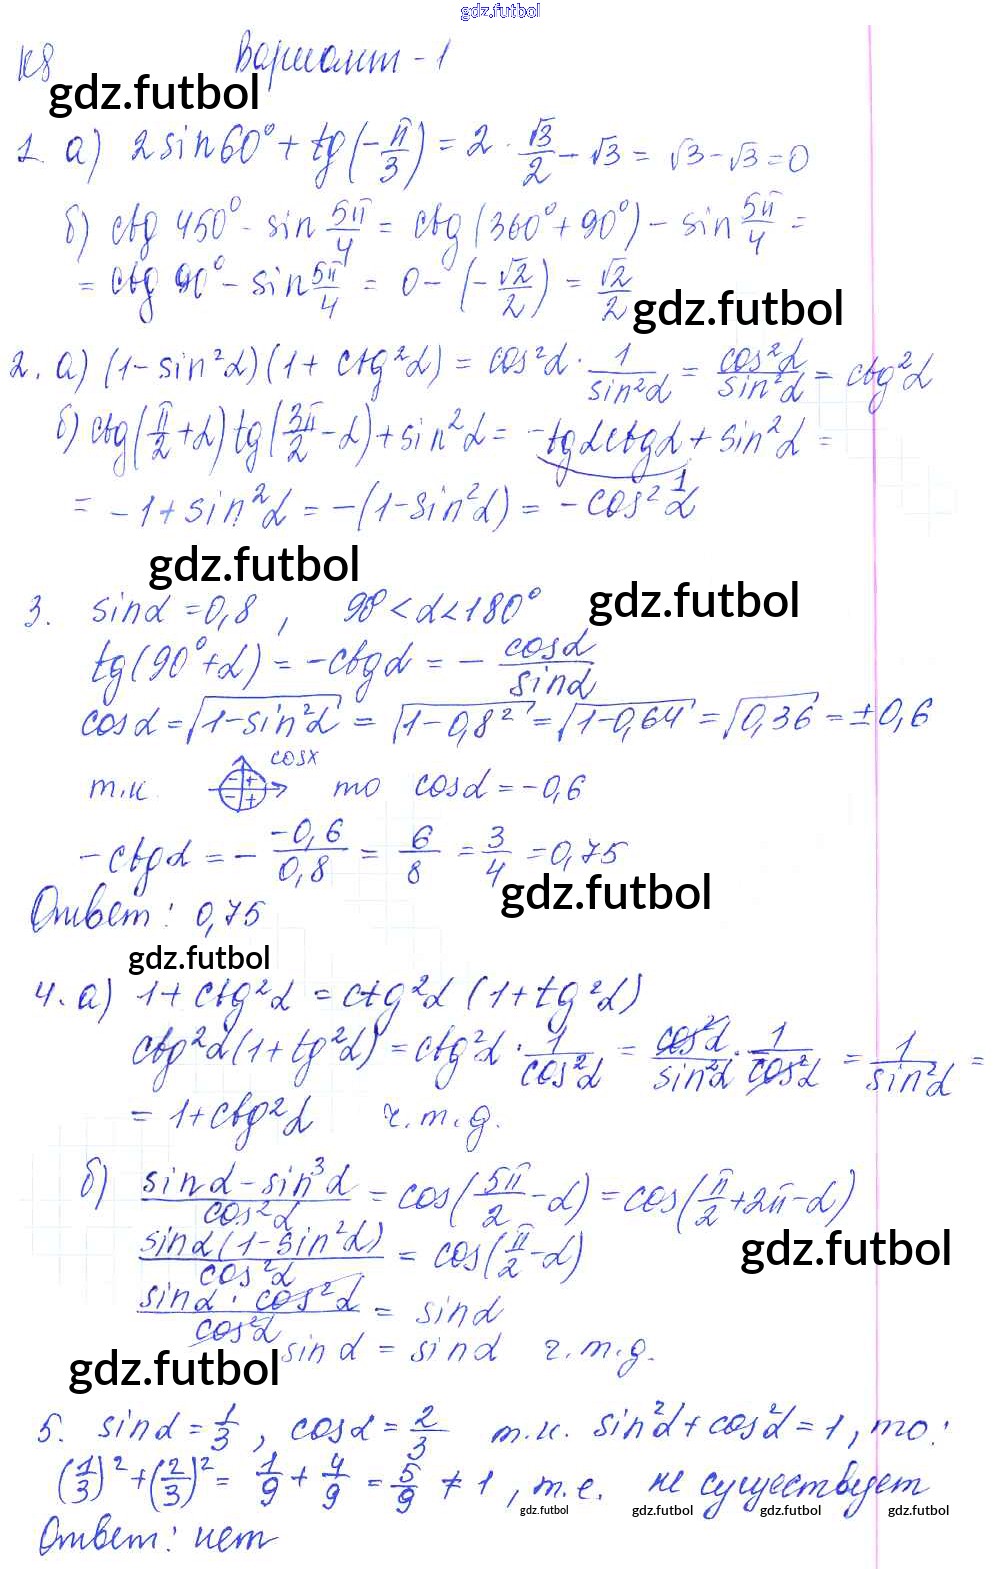 gdz.futbol
К8 Вариант - 1
gdz.futbol
1. а) 2 sin 60° + tg(-π/3) = 2 · √3/2 - √3 = √3 - √3 = 0
б) ctg 450° - sin 5π/4 = ctg(360° + 90°) - sin 5π/4 =
= ctg 90° - sin 5π/4 = 0 - (-√2/2) = √2/2
gdz.futbol
2. а) (1 - sin²α)(1 + ctg²α) = cos²α · 1/sin²α = cos²α/sin²α = ctg²α
б) ctg(π/2 + α) tg(3π/2 - α) + sin²α = -tgα ctgα + sin²α =
1
= -1 + sin²α = -(1 - sin²α) = -cos²α
gdz.futbol
gdz.futbol
3. sinα = 0,8 , 90° < α < 180°
tg(90° + α) = -ctgα = - cosα/sinα
cosα = √(1 - sin²α) = √(1 - 0,8²) = √(1 - 0,64) = √0,36 = ±0,6
cosx
т.к. - + - + то cosα = -0,6
-ctgα = - -0,6/0,8 = 6/8 = 3/4 = 0,75
gdz.futbol
Ответ: 0,75
gdz.futbol
4. а) 1 + ctg²α = ctg²α (1 + tg²α)
ctg²α(1 + tg²α) = ctg²α · 1/cos²α = cos²α/sin²α · 1/cos²α = 1/sin²α =
= 1 + ctg²α ч.т.д.
б) (sinα - sin³α)/cos²α = cos(5π/2 - α) = cos(π/2 + 2π - α)
gdz.futbol
sinα(1 - sin²α)/cos²α = cos(π/2 - α)
sinα · cos²α/cos²α = sinα
sinα = sinα ч.т.д.
gdz.futbol
5. sinα = 1/3 , cosα = 2/3 т.к. sin²α + cos²α = 1, то:
(1/3)² + (2/3)² = 1/9 + 4/9 = 5/9 ≠ 1 , т.е. не существует
gdz.futbol gdz.futbol gdz.futbol gdz.futbol
Ответ: нет